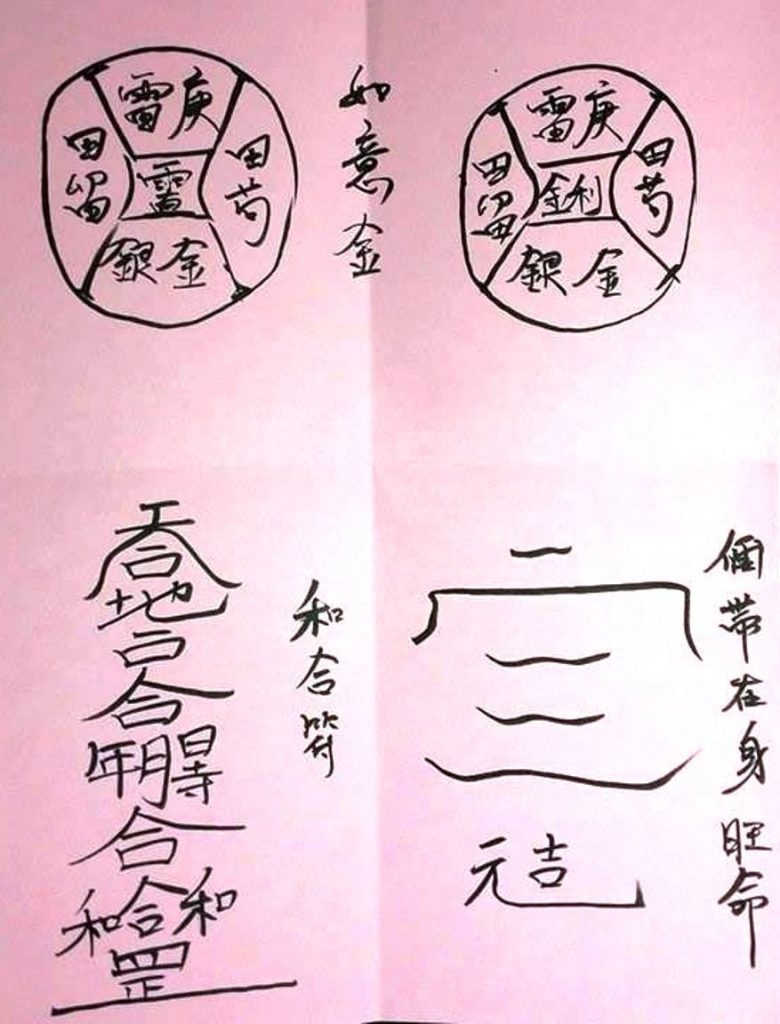 雷庚
田留
靈
田芍
銀金
如意金
雷庚
田留
鉝利
田芍
銀金
合
地
合
年月日時
合
和合和
罡
和合符
二
元吉
佃帶在身旺命